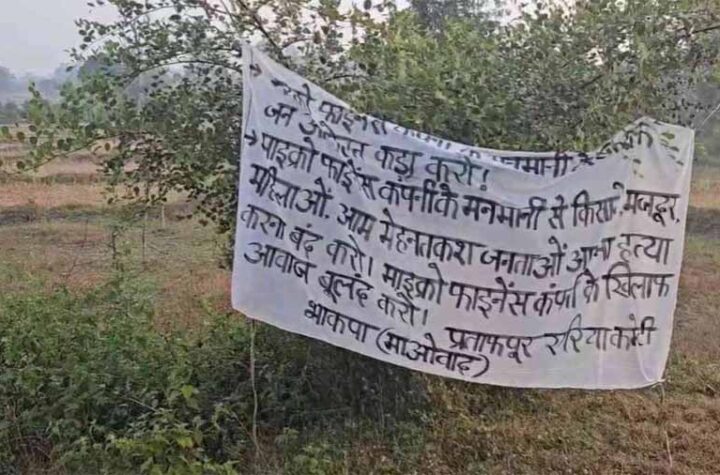 → फाइनेंस मनमानी के
जन आंदोलन कड़ा करो!
→ माइक्रो फाइनेंस कंपनी के मनमानी से किसान, मजदूर,
महिलाओं, आम मेहनतकश जनताओं आत्म हत्या
करना बंद करो। माइक्रो फाइनेंस कंपनी के खिलाफ
आवाज बुलंद करो।
भाकपा (माओवाद) प्रतापपुर एरिया कमेटी